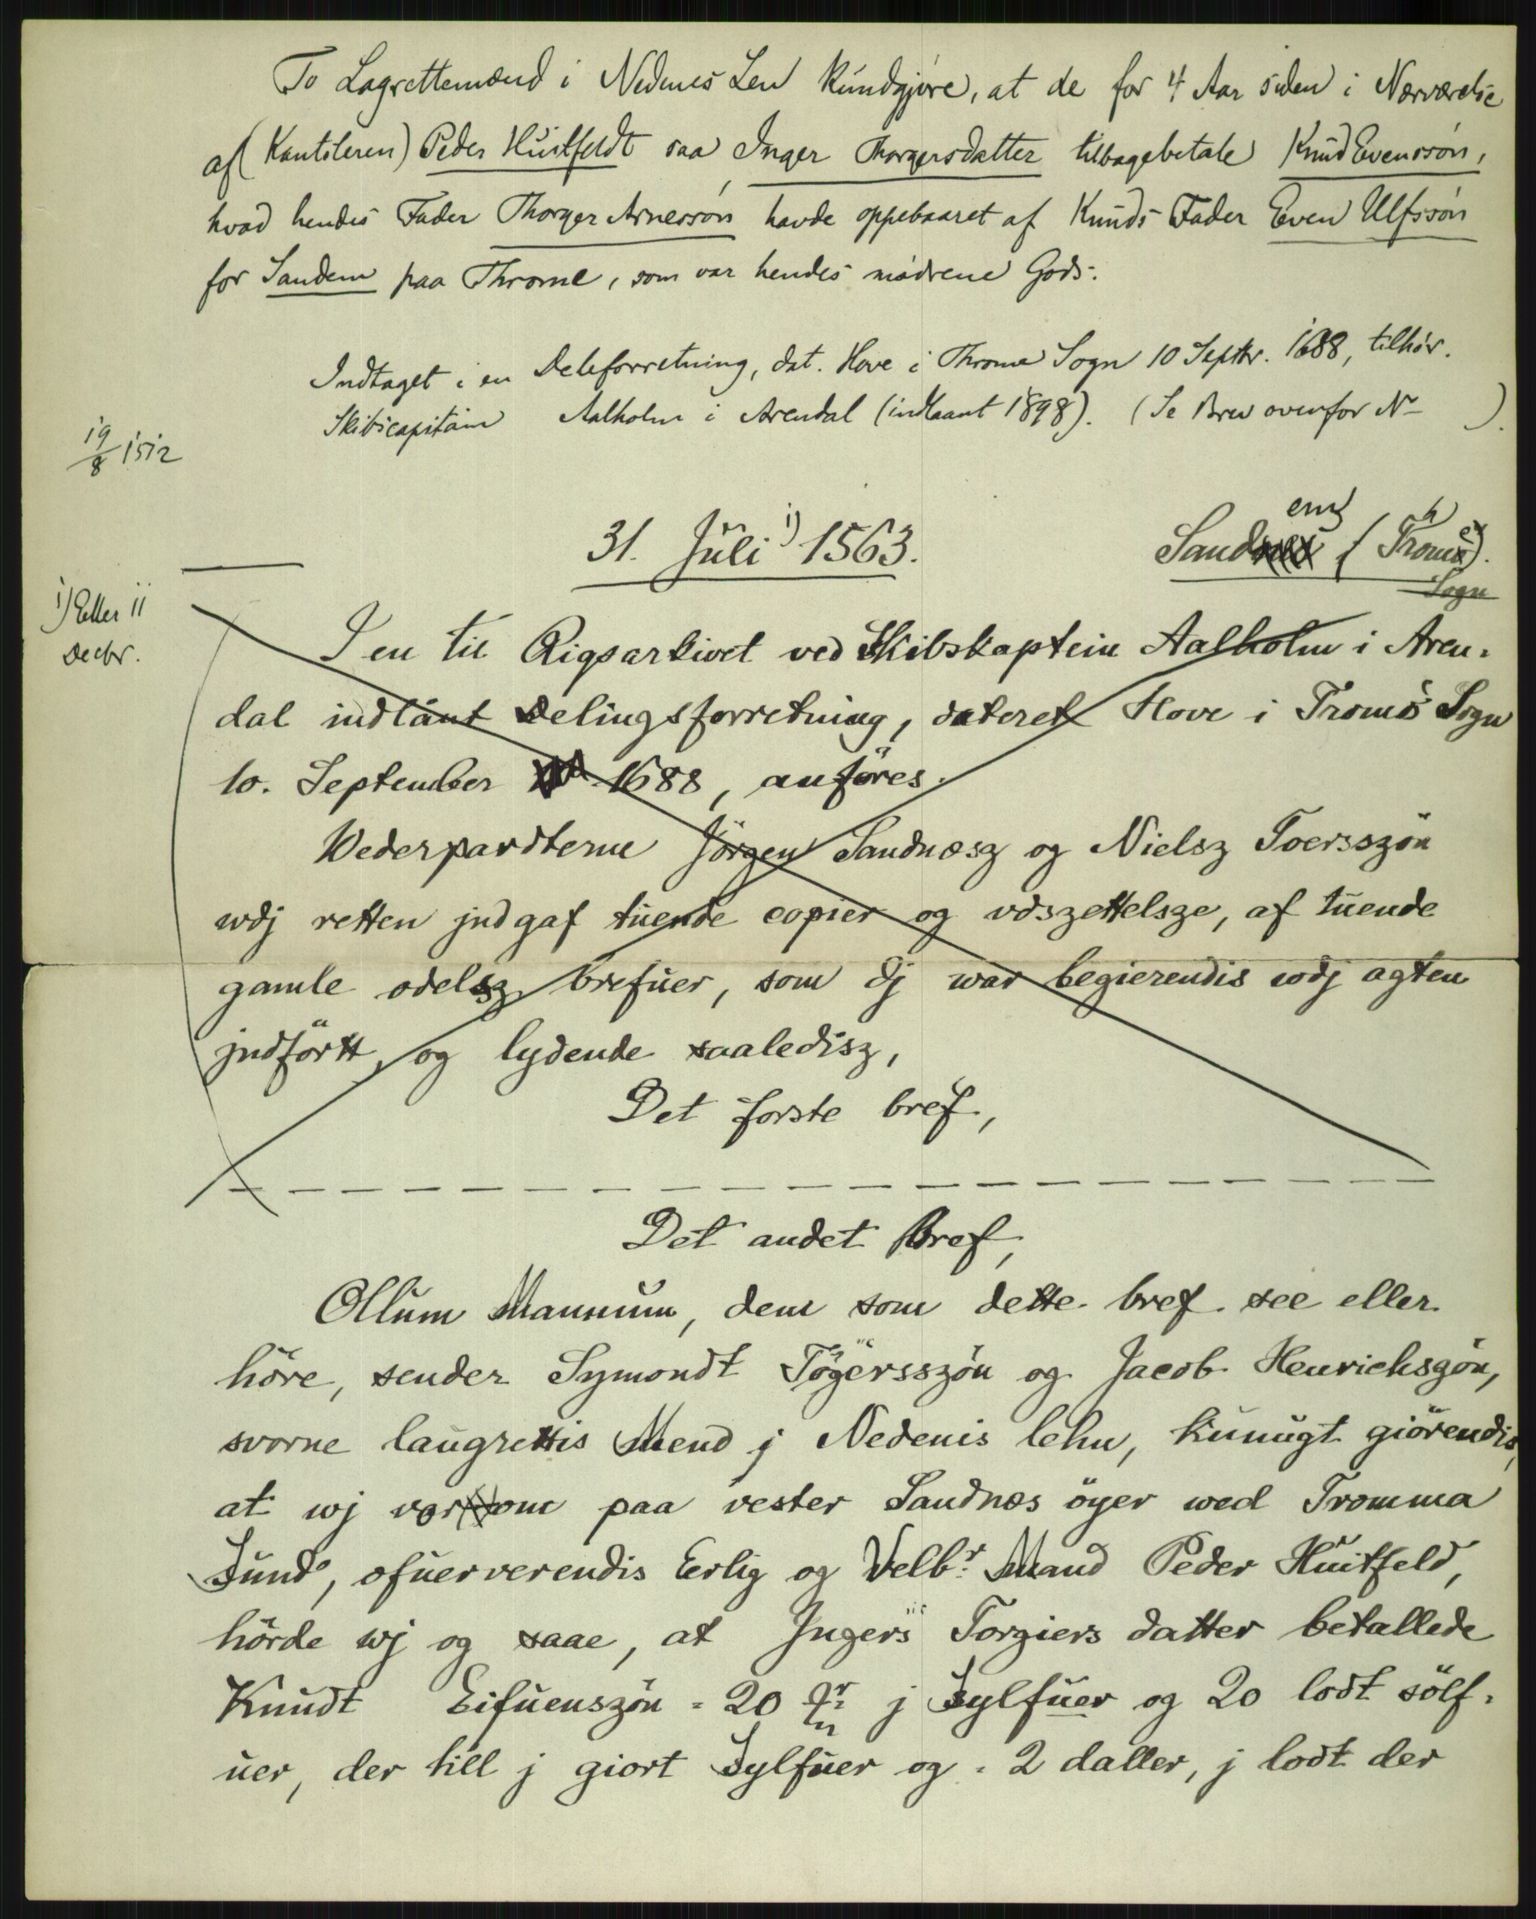 To Lagrettemænd i Nedenes Len kundgjøre, at de for 4 Aar siden i Nærværelse
af (Kantsleren) Peder Huitfeldt saa Inger Thorgersdatter tilbagebetale Knud Evenssøn,
hvad hendes Fader Thorger Arnessøn havde oppebaaret af Knuds Fader Even Ulfssøn
for Sandem paa Thromø, som var hendes mødrene Gods.
Indtaget i en Deleforretning, dat. Hove i Thromø Sogn 10 Septbr. 1688, tilhør.
Skibscapitain Aalholm i Arendal (indlaant 1898). (Se Brev ovenfor No ).
19/8 1512
31. Juli 1) 1563.
em
Sand (Thromø).
Sogn
1) Eller 11
Decbr.
I en til Rigsarkivet ved Skibskaptein Aalholm i Aren-
dal indlånt Delingsforretning, dateret Hove i Tromö Sogn
10. September 1688, anföres.
Wederpardterne Jörgen Sandnæsz og Nielsz Toersszön
wdj retten jndgaf tuende copier og vdszettelsze, af tuende
gamle odelsz brefuer, som dj war begierendis wdj agten
jndförtt, og lydende saaledisz,
Det forste bref,
Det andet Bref,
Ollum Mannum, dem som dette bref see eller
höre, sender Symondt Tögersszön og Jacob Henrichszön,
svorne laugrettis Mend j Nedenis lehn, kunugt giörendis,
at wj vor om paa vester Sandnæs öyer wed Tromma
Sund, ofuerverendis Erlig og Velbr. Mand Peder Huitfeld,
hörde wj og saae, at Ingers Torgiers datter betallede
Knudt Eifuenszön - 20 j Sylfuer og 20 lodt sölf-
uer, der till j giort Sylfuer og - 2 daller, j lodt der